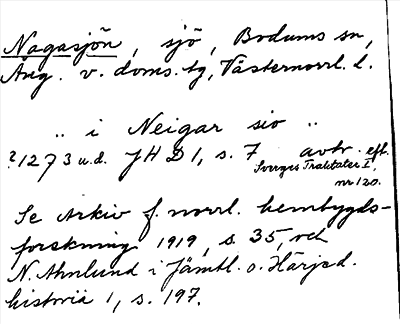 Nagasjön, sjö, Bodums sn,
Ång. v. doms. tg, Västernorrl. l.
" i Neigar sio "
? 1273 u.d. JHD 1, s. 7 avtr. eft.
Sverges Traktater I,
nr 120.
Se Arkiv f. norrl. hembygds-
forskning 1919, s. 35, och
N. Ahnlund i Jämtl. o. Härjed.
historia 1, s. 197.